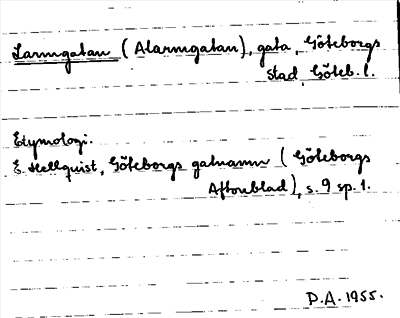 Larmgatan (Alarmgatan), gata, Göteborgs
stad, Göteb. l.
Etymologi.
E. Hellquist, Göteborgs gatnamn (Göteborgs
Aftonblad), s. 9 sp. 1.
P.A. 1955.